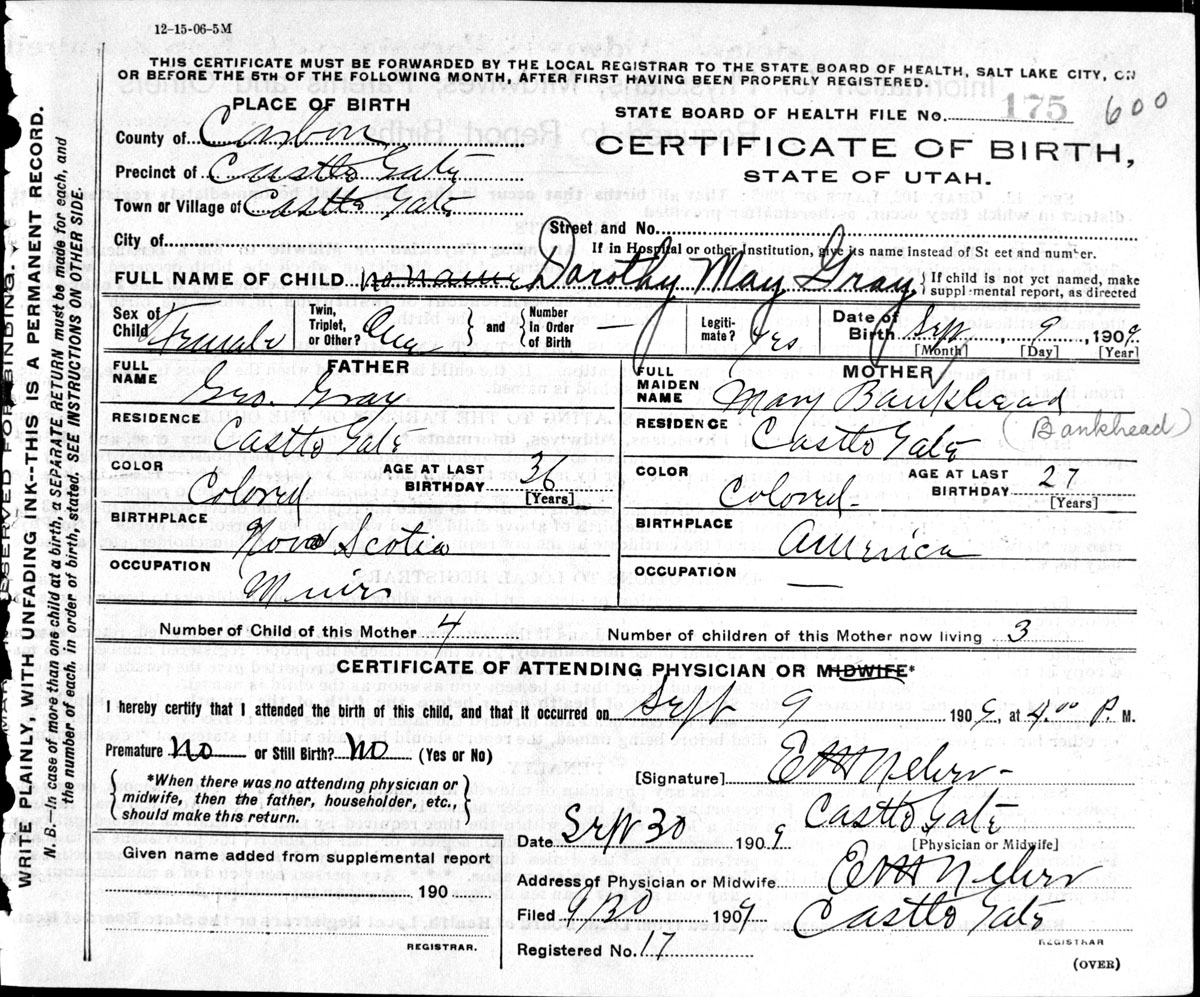 12-15-06-5M
THIS CERTIFICATE MUST BE FORWARDED BY THE LOCAL REGISTRAR TO THE STATE BOARD OF HEALTH, SALT LAKE CITY, ON
OR BEFORE THE 5TH OF THE FOLLOWING MONTH, AFTER FIRST HAVING BEEN PROPERLY REGISTERED.
PLACE OF BIRTH
STATE BOARD OF HEALTH FILE No. 175 600
County of Carbon
CERTIFICATE OF BIRTH,
Precinct of Castle Gate
STATE OF UTAH.
Town or Village of Castle Gate
Street and No.
City of
If in Hospital or other Institution, give its name instead of St eet and number.
FULL NAME OF CHILD no name Dorothy May Gray { If child is not yet named, make supplemental report, as directed
Sex of Child Female Twin, Triplet, or Other? One } and { Number In Order of Birth — Legitimate? Yes Date of Birth Sept, 9, 1909
[Month] [Day] [Year]
FATHER
FULL NAME Geo. Gray
RESIDENCE Castle Gate
COLOR Colored AGE AT LAST BIRTHDAY 36 [Years]
BIRTHPLACE Nova Scotia
OCCUPATION
MOTHER
FULL MAIDEN NAME Mary Bankhead
RESIDENCE Castle Gate (Bankhead)
COLOR Colored AGE AT LAST BIRTHDAY 27 [Years]
BIRTHPLACE America
OCCUPATION —
Number of Child of this Mother 4 Number of children of this Mother now living 3
CERTIFICATE OF ATTENDING PHYSICIAN OR MIDWIFE*
I hereby certify that I attended the birth of this child, and that it occurred on Sept 9 1909, at 4.00 P. M.
Premature No or Still Birth? No (Yes or No)
*When there was no attending physician or midwife, then the father, householder, etc., should make this return.
[Signature]
Castle Gate
Date Sept 30 1909
[Physician or Midwife]
Given name added from supplemental report
190
REGISTRAR.
Address of Physician or Midwife
Filed 9/30 1909 Castle Gate
REGISTRAR
Registered No. 17
(OVER)
RESERVED FOR BINDING.
WRITE PLAINLY, WITH UNFADING INK--THIS IS A PERMANENT RECORD.
N. B.—In case of more than one child at a birth, a SEPARATE RETURN must be made for each, and
the number of each, in order of birth, stated. SEE INSTRUCTIONS ON OTHER SIDE.